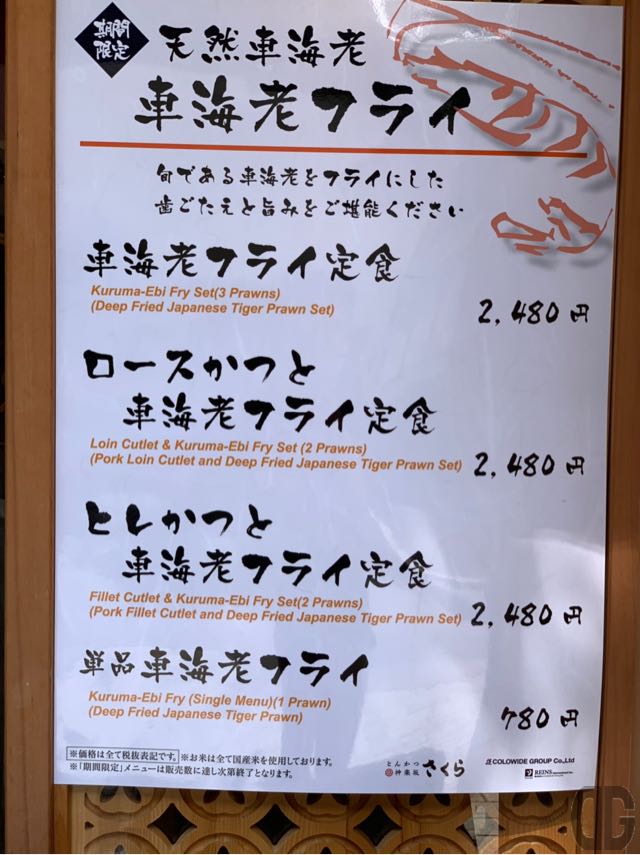 期間
限定
天然車海老
車海老フライ
旬である車海老をフライにした
歯ごたえと旨みをご堪能ください
車海老フライ定食
Kuruma-Ebi Fry Set(3 Prawns)
(Deep Fried Japanese Tiger Prawn Set)
2,480円
ロースかつと
車海老フライ定食
Loin Cutlet & Kuruma-Ebi Fry Set (2 Prawns)
(Pork Loin Cutlet and Deep Fried Japanese Tiger Prawn Set)
2,480円
ヒレかつと
車海老フライ定食
Fillet Cutlet & Kuruma-Ebi Fry Set(2 Prawns)
(Pork Fillet Cutlet and Deep Fried Japanese Tiger Prawn Set)
2,480円
単品車海老フライ
Kuruma-Ebi Fry (Single Menu)(1 Prawn)
(Deep Fried Japanese Tiger Prawn)
780円
※価格は全て税抜表記です。※お米は全て国産米を使用しております。
※「期間限定」メニューは販売数に達し次第終了となります。
とんかつ
神楽坂
さくら
COLOWIDE GROUP Co.,Ltd
REINS international inc.